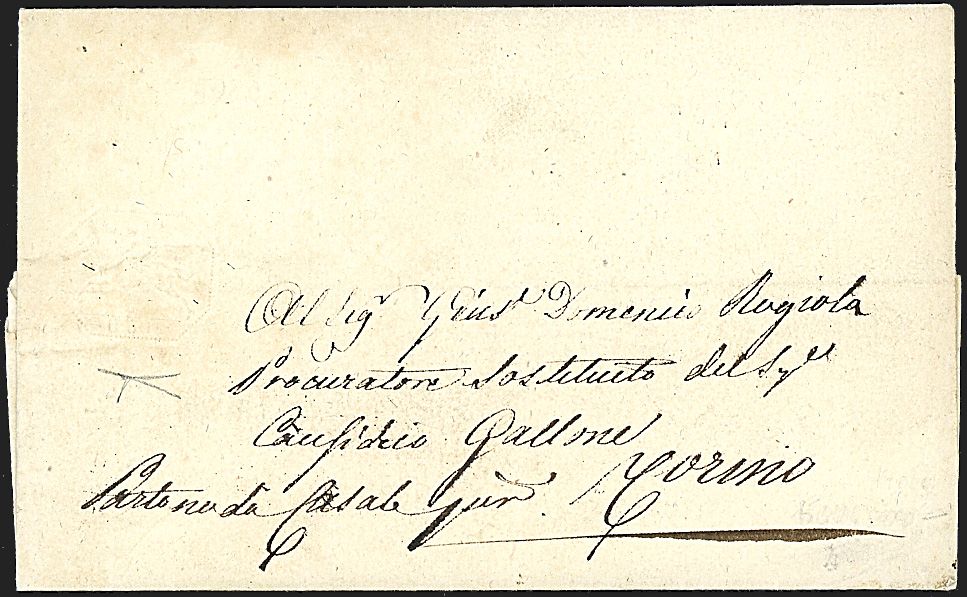 Al Sig.r Gius.e Domenico Rogiola
Procuratore Sostituito del Sig.r
Causidico Gallone
Torino
Partono da Casale per